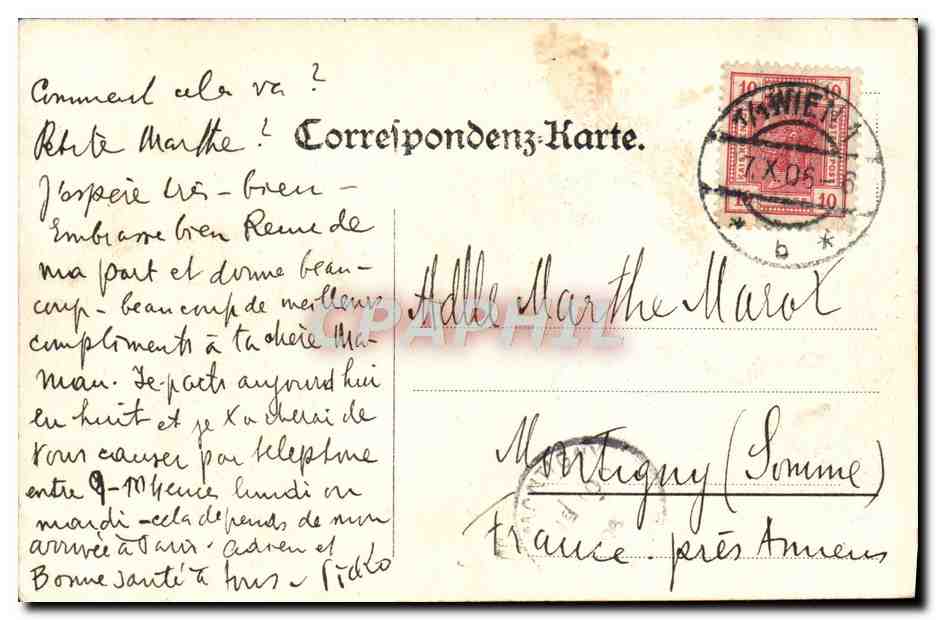 Comment cela va ?
Petite Marthe ?
J'espère très - bien -
Embrasse bien Renée de
ma part et donne beau-
coup - beaucoup de meilleurs
compliments à ta chère Ma-
man. Je parts aujourd'hui
en huit et je tacherai de
vous causer par telephone
entre 9-10 heures lundi ou
mardi - cela depends de mon
arrivée à Paris. Adieu et
Bonne santé à tous -
Correspondenz-Karte.
10 10
1/1 WIEN 1
7.X.06 - 6
* b *
10 10
Marthe Marox
CPAPHIL
Montigny (Somme)
MONTIGNY
France. près Amiens